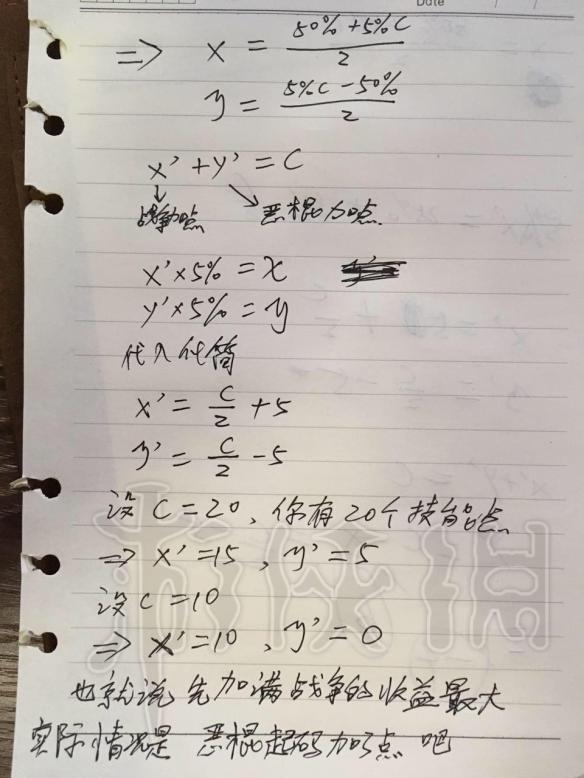 Date / /
=> x = (50% + 5%C) / 2
y = (5%C - 50%) / 2
x' + y' = C
战争加点 恶棍加点
x' × 5% = x
y' × 5% = y
代入化简
x' = C/2 + 5
y' = C/2 - 5
设 C = 20, 你有20个技能点
=> x' = 15, y' = 5
设 C = 10
=> x' = 10, y' = 0
也就说 先加满战争的收益最大
实际情况是 恶棍起码加5点 吧